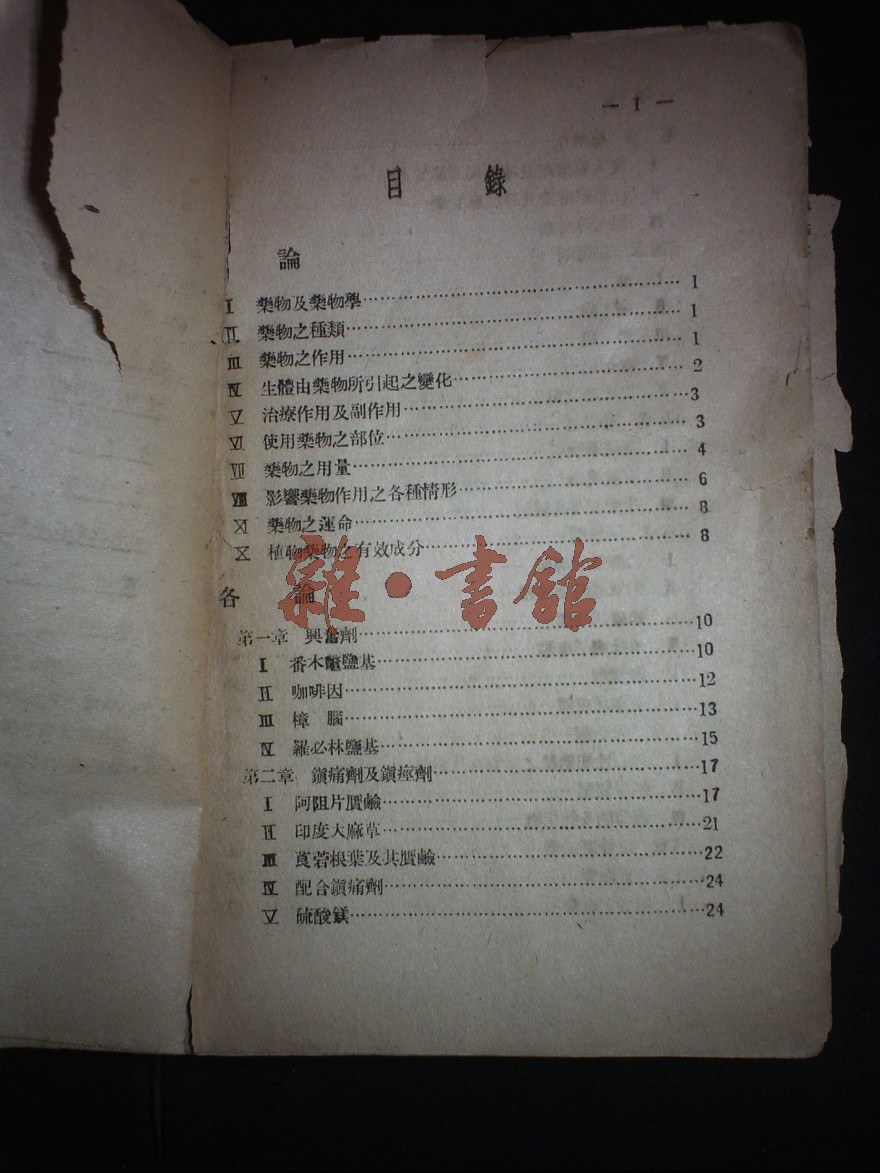 — I —
目 錄
論
I 藥物及藥物學…………1
II 藥物之種類…………1
III 藥物之作用…………1
IV 生體由藥物所引起之變化…………2
V 治療作用及副作用…………3
VI 使用藥物之部位…………3
VII 藥物之用量…………4
VIII 影響藥物作用之各種情形…………6
IX 藥物之運命…………8
X 植物藥物之有效成分…………8
雜·書館
各 論
第一章 興奮劑…………10
I 番木鼈鹽基…………10
II 咖啡因…………12
III 樟 腦…………13
IV 羅必林鹽基…………15
第二章 鎭痛劑及鎭痙劑…………17
I 阿阻片贋鹼…………17
II 印度大麻草…………21
III 莨若根葉及其贋鹼…………22
IV 配合鎭痛劑…………24
V 硫酸鎂…………24